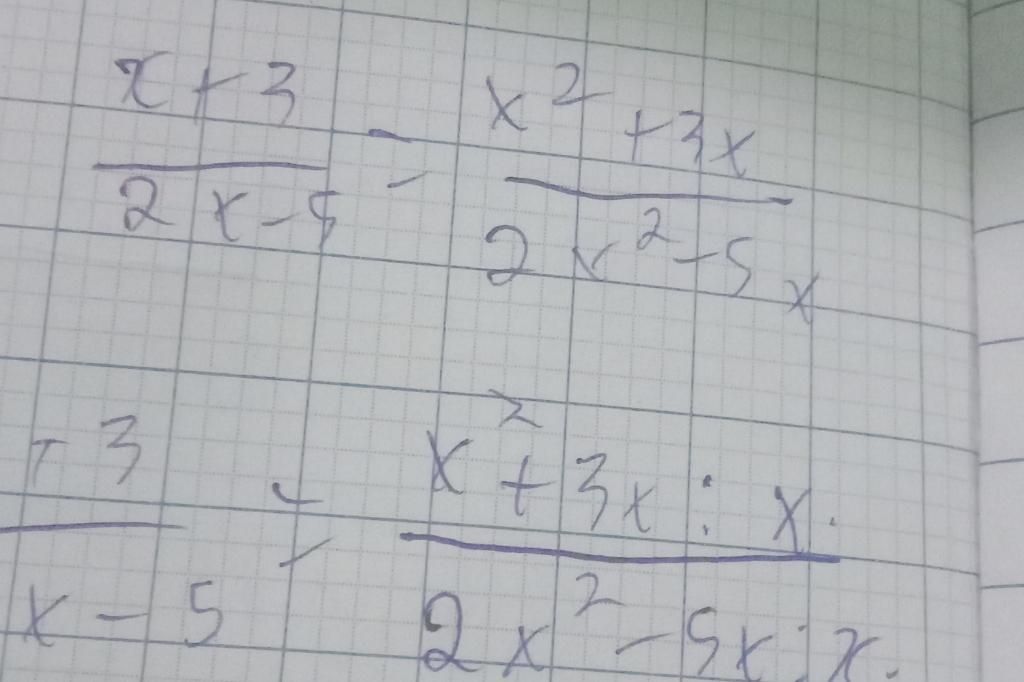 x + 3 / 2x - 5 = x² + 3x / 2x² - 5x
+ 3 / x - 5 = x² + 3x : x. / 2x² - 5x : x.